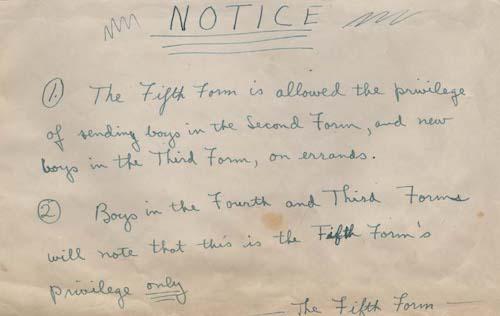 NOTICE
1. The Fifth Form is allowed the privilege
of sending boys in the Second Form, and new
boys in the Third Form, on errands.
2. Boys in the Fourth and Third Forms
will note that this is the Fifth Form's
privilege only
— The Fifth Form —